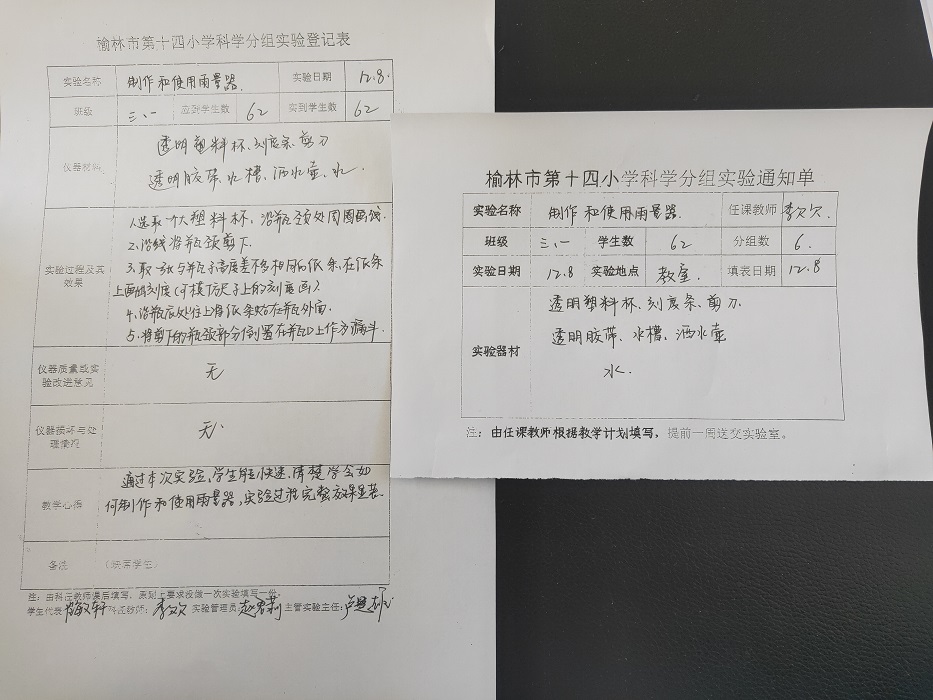 榆林市第十四小学科学分组实验登记表
实验名称 制作和使用雨量器. 实验日期 12.8.
班级 三、一 应到学生数 62 实到学生数 62
仪器材料
透明塑料杯、刻度条、剪刀
透明胶带、水槽、洒水壶、水.
实验过程及其效果
1.选取一个大塑料杯,沿瓶颈处周围画线.
2.沿线将瓶颈剪下.
3.取一张与瓶子高度差不多相同的纸条,在纸条
上画出刻度(可模仿尺子上的刻度画).
4.沿瓶底处往上将纸条贴在瓶外面.
5.将剪下的瓶颈部分倒置在瓶口上作为漏斗.
仪器质量或实验改进意见 无
仪器损坏与处理情况 无.
教学心得
通过本次实验,学生能快速、清楚学会如
何制作和使用雨量器,实验过程完整效果显著.
备注 (缺席学生)
注:由科任教师课后填写,原则上要求没做一次实验填写一份。
学生代表: 科任教师:李欠欠 实验管理员: 主管实验主任:
榆林市第十四小学科学分组实验通知单
实验名称 制作和使用雨量器. 任课教师 李欠欠.
班级 三、一 学生数 62 分组数 6.
实验日期 12.8 实验地点 教室. 填表日期 12.8
实验器材
透明塑料杯、刻度条、剪刀.
透明胶带、水槽、洒水壶
水.
注:由任课教师根据教学计划填写,提前一周送交实验室。